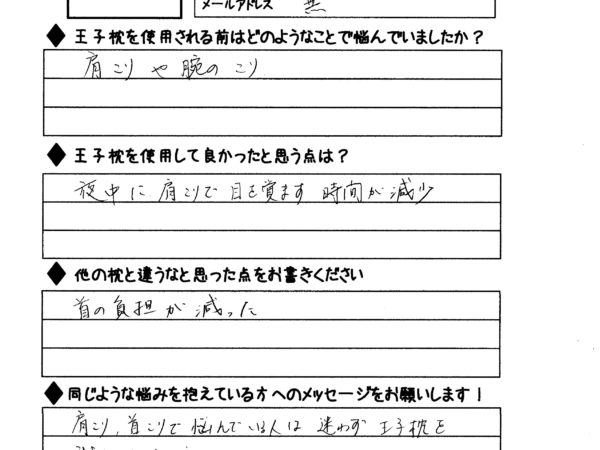 メールアドレス 無
◆王子枕を使用される前はどのようなことで悩んでいましたか？
肩こり や 腕の こり
◆王子枕を使用して良かったと思う点は？
夜中に 肩こりで 目を覚ます 時間が 減少
◆他の枕と違うなと思った点をお書きください
首の負担が 減った
◆同じような悩みを抱えている方へのメッセージをお願いします！
肩こり、首こりで 悩んでいる人は 迷わず 王子枕を